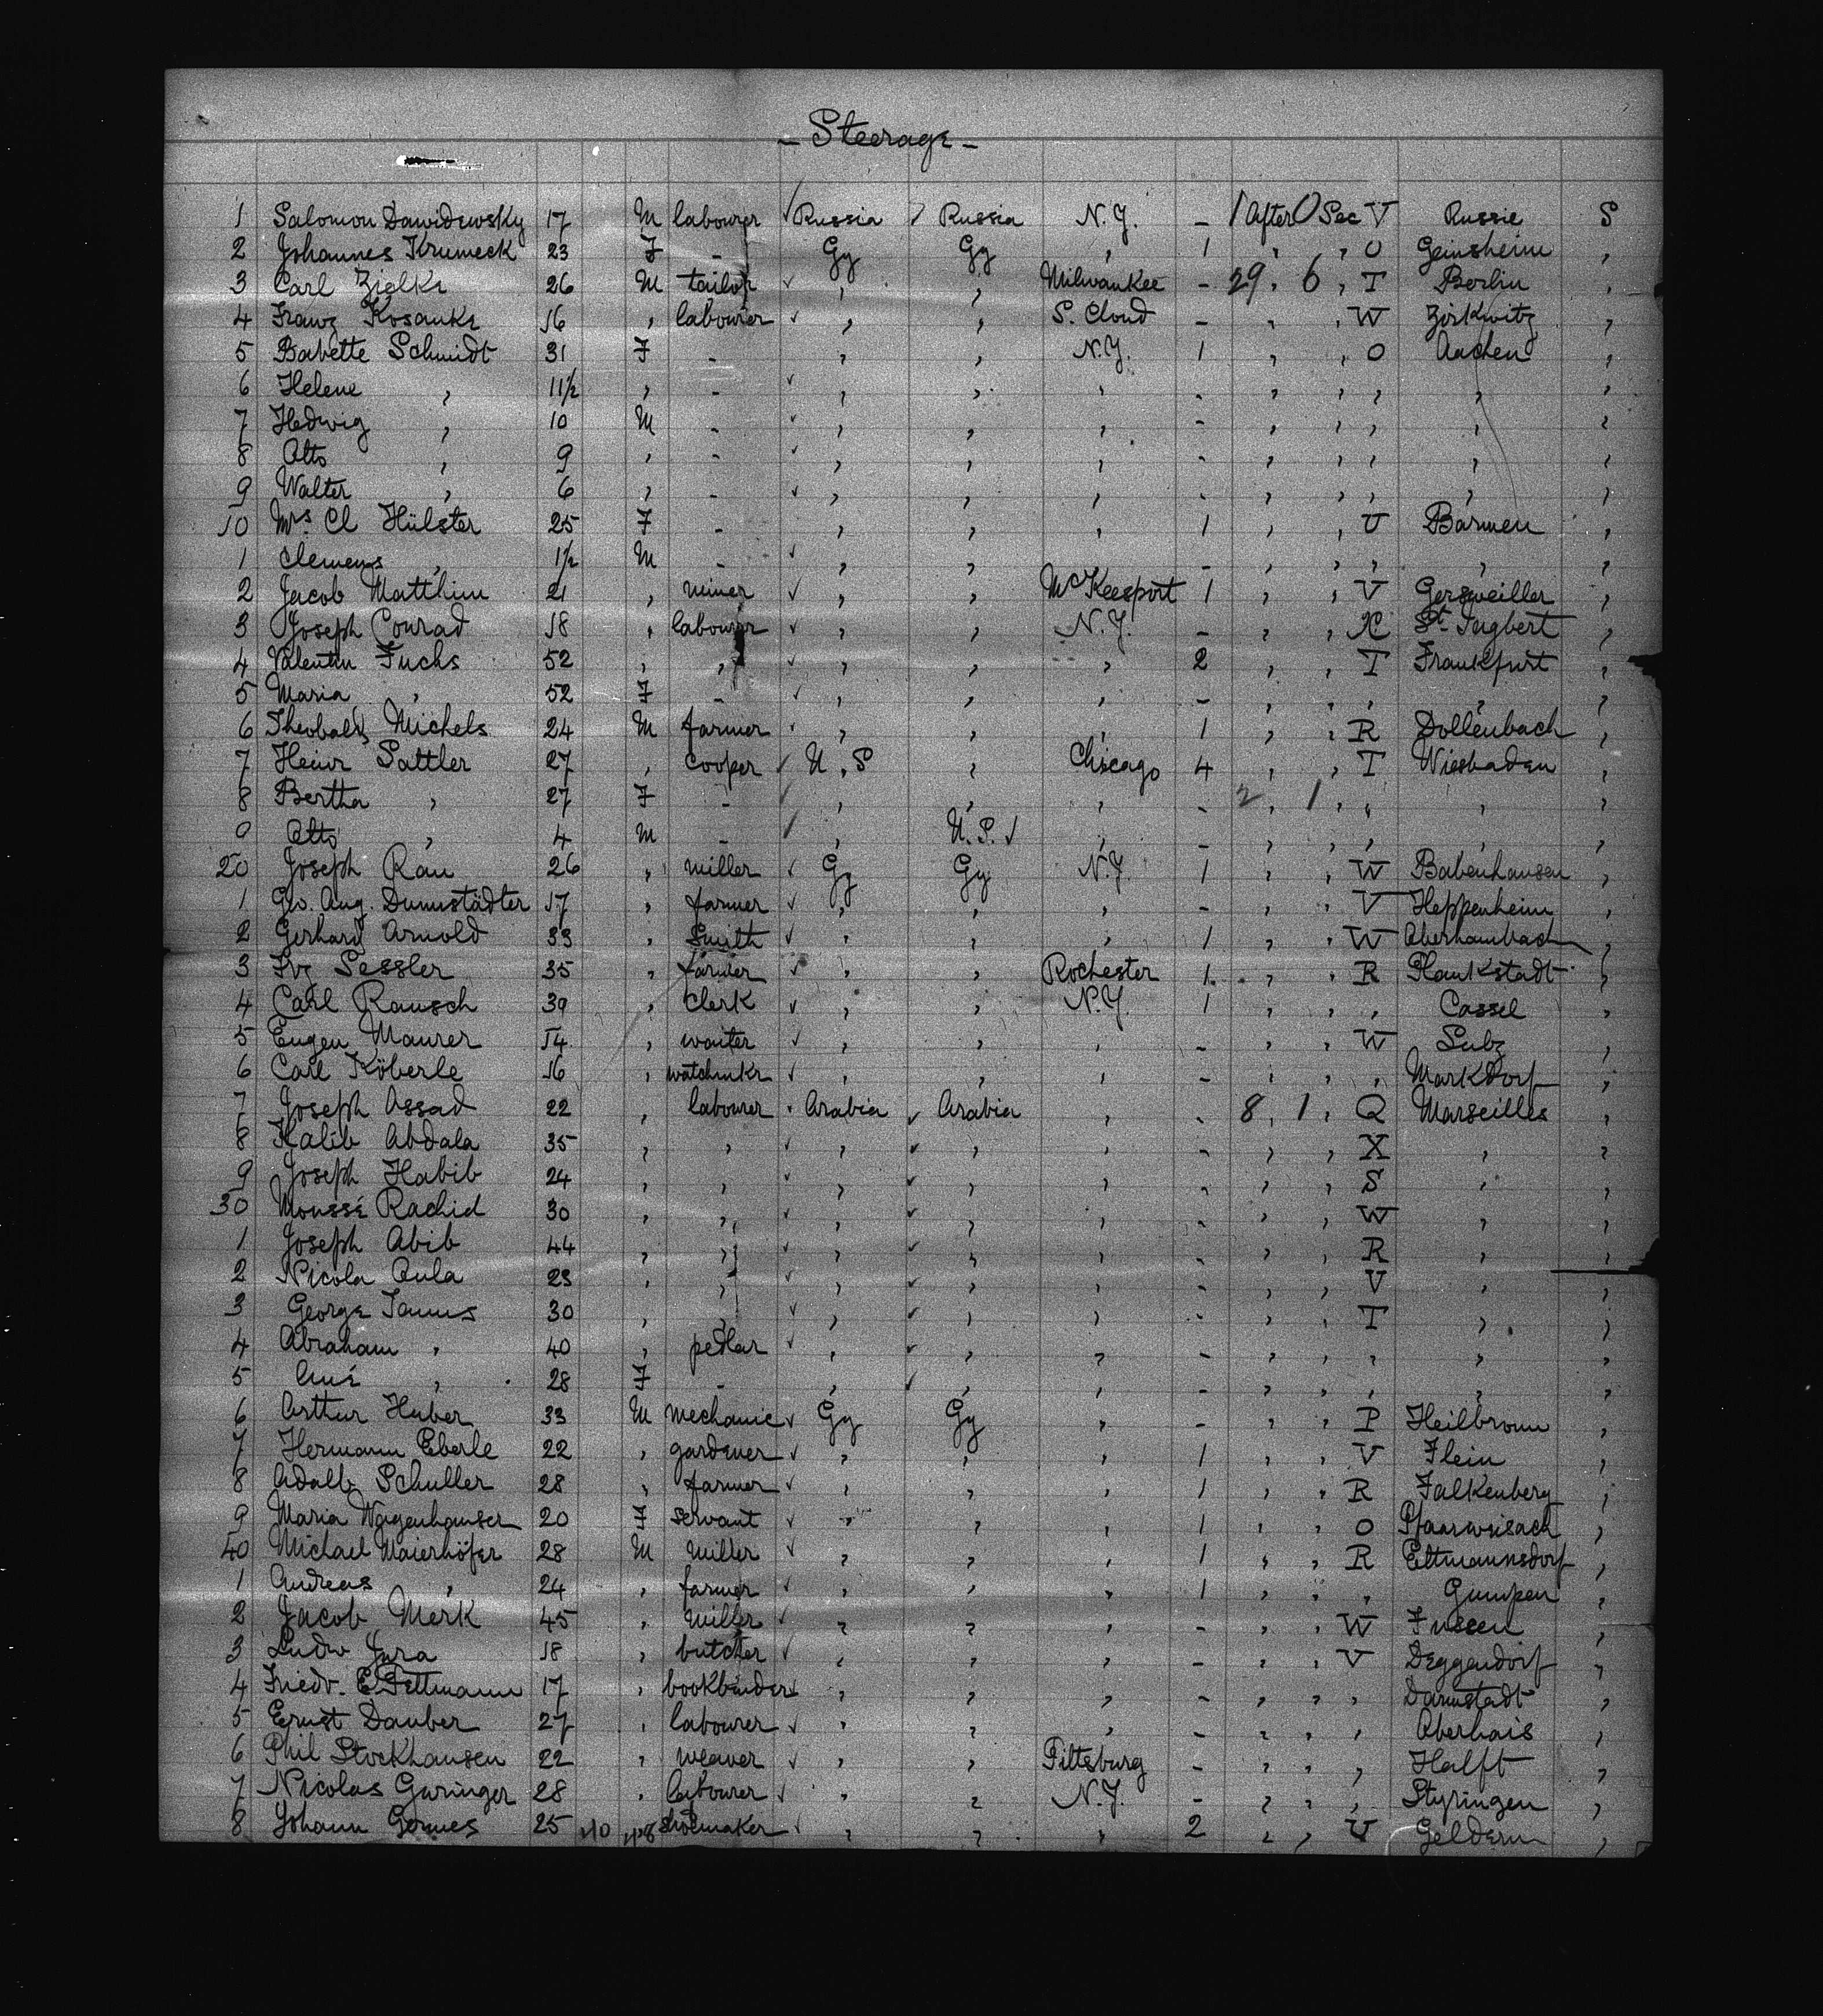 - Steerage -
1 Salomon Dawidewsky 17 M labourer ✓ Russia Russia N.Y. - 1 After 0 Sec V Russie S
2 Johannes Krumeck 23 F - Gy Gy , 1 , , O Geinsheim ,
3 Carl Zielke 26 M tailor ✓ , , Milwaukee - 29 , 6 , T Berlin ,
4 Franz Kosanke 16 , labourer ✓ , , S. Cloud - , , W Zirkwitz ,
5 Babette Schmidt 31 F - , , N.Y. 1 , , O Aachen ,
6 Helene , 11½ , - ✓ , , , - , , , , ,
7 Hedwig , 10 M - ✓ , , , - , , , , ,
8 Otto , 9 , - ✓ , , , - , , , , ,
9 Walter , 6 , - ✓ , , , - , , , , ,
10 Mrs Cl Hülster 25 F - , , , 1 , , U Barmen ,
1 Clemens , 1½ M - ✓ , , , - , , , , ,
2 Jacob Matthim 21 , miner ✓ , , McKeesport 1 , , V Gersweiller ,
3 Joseph Conrad 18 , labourer ✓ , , N.Y. - , , X St Ingbert ,
4 Valentin Fuchs 52 , , ✓ , , , 2 , , T Frankfurt ,
5 Maria , 52 F - ✓ , , , - , , , , ,
6 Theobald Michels 24 M farmer , , , 1 , , R Dollenbach ,
7 Heinr Sattler 27 , cooper ✓ U.S , Chicago 4 , , T Wiesbaden ,
8 Bertha , 27 F - , , , - 2 , 1 , , , ,
9 Otto , 4 M - , U.S. ✓ , - , , , , ,
20 Joseph Rau 26 , miller ✓ Gy Gy N.Y. 1 , , W Babenhausen ,
1 Geo. Aug. Dummstädter 17 , farmer ✓ , , , - , , V Heppenheim ,
2 Gerhard Arnold 33 , Smith ✓ , , , 1 , , W Oberhambach ,
3 Frz Sessler 35 , farmer ✓ , , Rochester 1 , , R Plankstadt ,
4 Carl Rausch 39 , clerk ✓ , , N.Y. 1 , , , Cassel ,
5 Eugen Maurer 14 , waiter ✓ , , , - , , W Sulz ,
6 Carl Köberle 16 , watchmkr ✓ , , , - , , , Markdorf ,
7 Joseph Assad 22 , labourer Arabia ✓ Arabia , - 8 , 1 , Q Marseilles ,
8 Kalib Abdala 35 , , ✓ , ✓ , , - , , X , ,
9 Joseph Habib 24 , , ✓ , ✓ , , - , , S , ,
30 Moussé Rachid 30 , , ✓ , ✓ , , - , , W , ,
1 Joseph Abib 44 , , ✓ , ✓ , , - , , R , ,
2 Nicola Aula 23 , , ✓ , ✓ , , - , , V , ,
3 George Tanus 30 , , ✓ , ✓ , , - , , T , ,
4 Abraham , 40 , pedlar ✓ , ✓ , , - , , , , ,
5 , 28 F - , ✓ , , - , , , , ,
6 Arthur Huber 33 M mechanic ✓ Gy Gy , - , , P Heilbronn ,
7 Hermann Eberle 22 , gardener ✓ , , , 1 , , V Flein ,
8 Adalb Schuller 28 , farmer ✓ , , , 1 , , R Falkenberg ,
9 Maria Wagenhauser 20 F servant ✓ , , , 1 , , O Pfaarweisach ,
40 Michael Maierhöfer 28 M miller ✓ , , , 1 , , R Ettmannsdorf ,
1 Andreas , 24 , farmer ✓ , , , 1 , , , Gumpen ,
2 Jacob Merk 45 , miller ✓ , , , - , , W Fussen ,
3 Ludw Jura 18 , butcher ✓ , , , - , , V Deggendorf ,
4 Friedr. E. Dettmann 17 , bookbinder ✓ , , , - , , , Darmstadt ,
5 Ernst Dauber 27 , labourer ✓ , , , - , , , Oberhais ,
6 Phil Stockhausen 22 , weaver ✓ , , Pittsburg - , , , Halft ,
7 Nicolas Guringer 28 , labourer ✓ , , N.Y. - , , , Styringen ,
8 Johann Gormes 25 shoemaker ✓ , , , 2 , , U Geldern ,